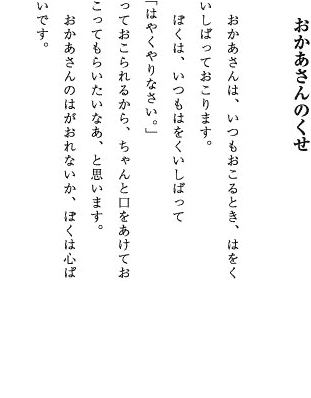 おかあさんのくせ
おかあさんは、いつもおこるとき、はをく
いしばっておこります。
ぼくは、いつもはをくいしばって
「はやくやりなさい。」
っておこられるから、ちゃんと口をあけてお
こってもらいたいなあ、と思います。
おかあさんのはがおれないか、ぼくは心ぱ
いです。